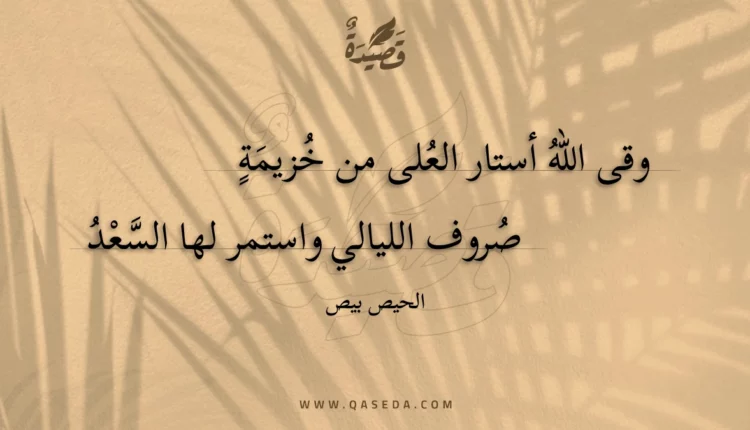 قَصِيْدَةٌ
وقى اللهُ أستار العُلى من خُزيمَةٍ
صُروف الليالي واستمر لها السَّعْدُ
الحيص بيص
WWW.QASEDA.COM